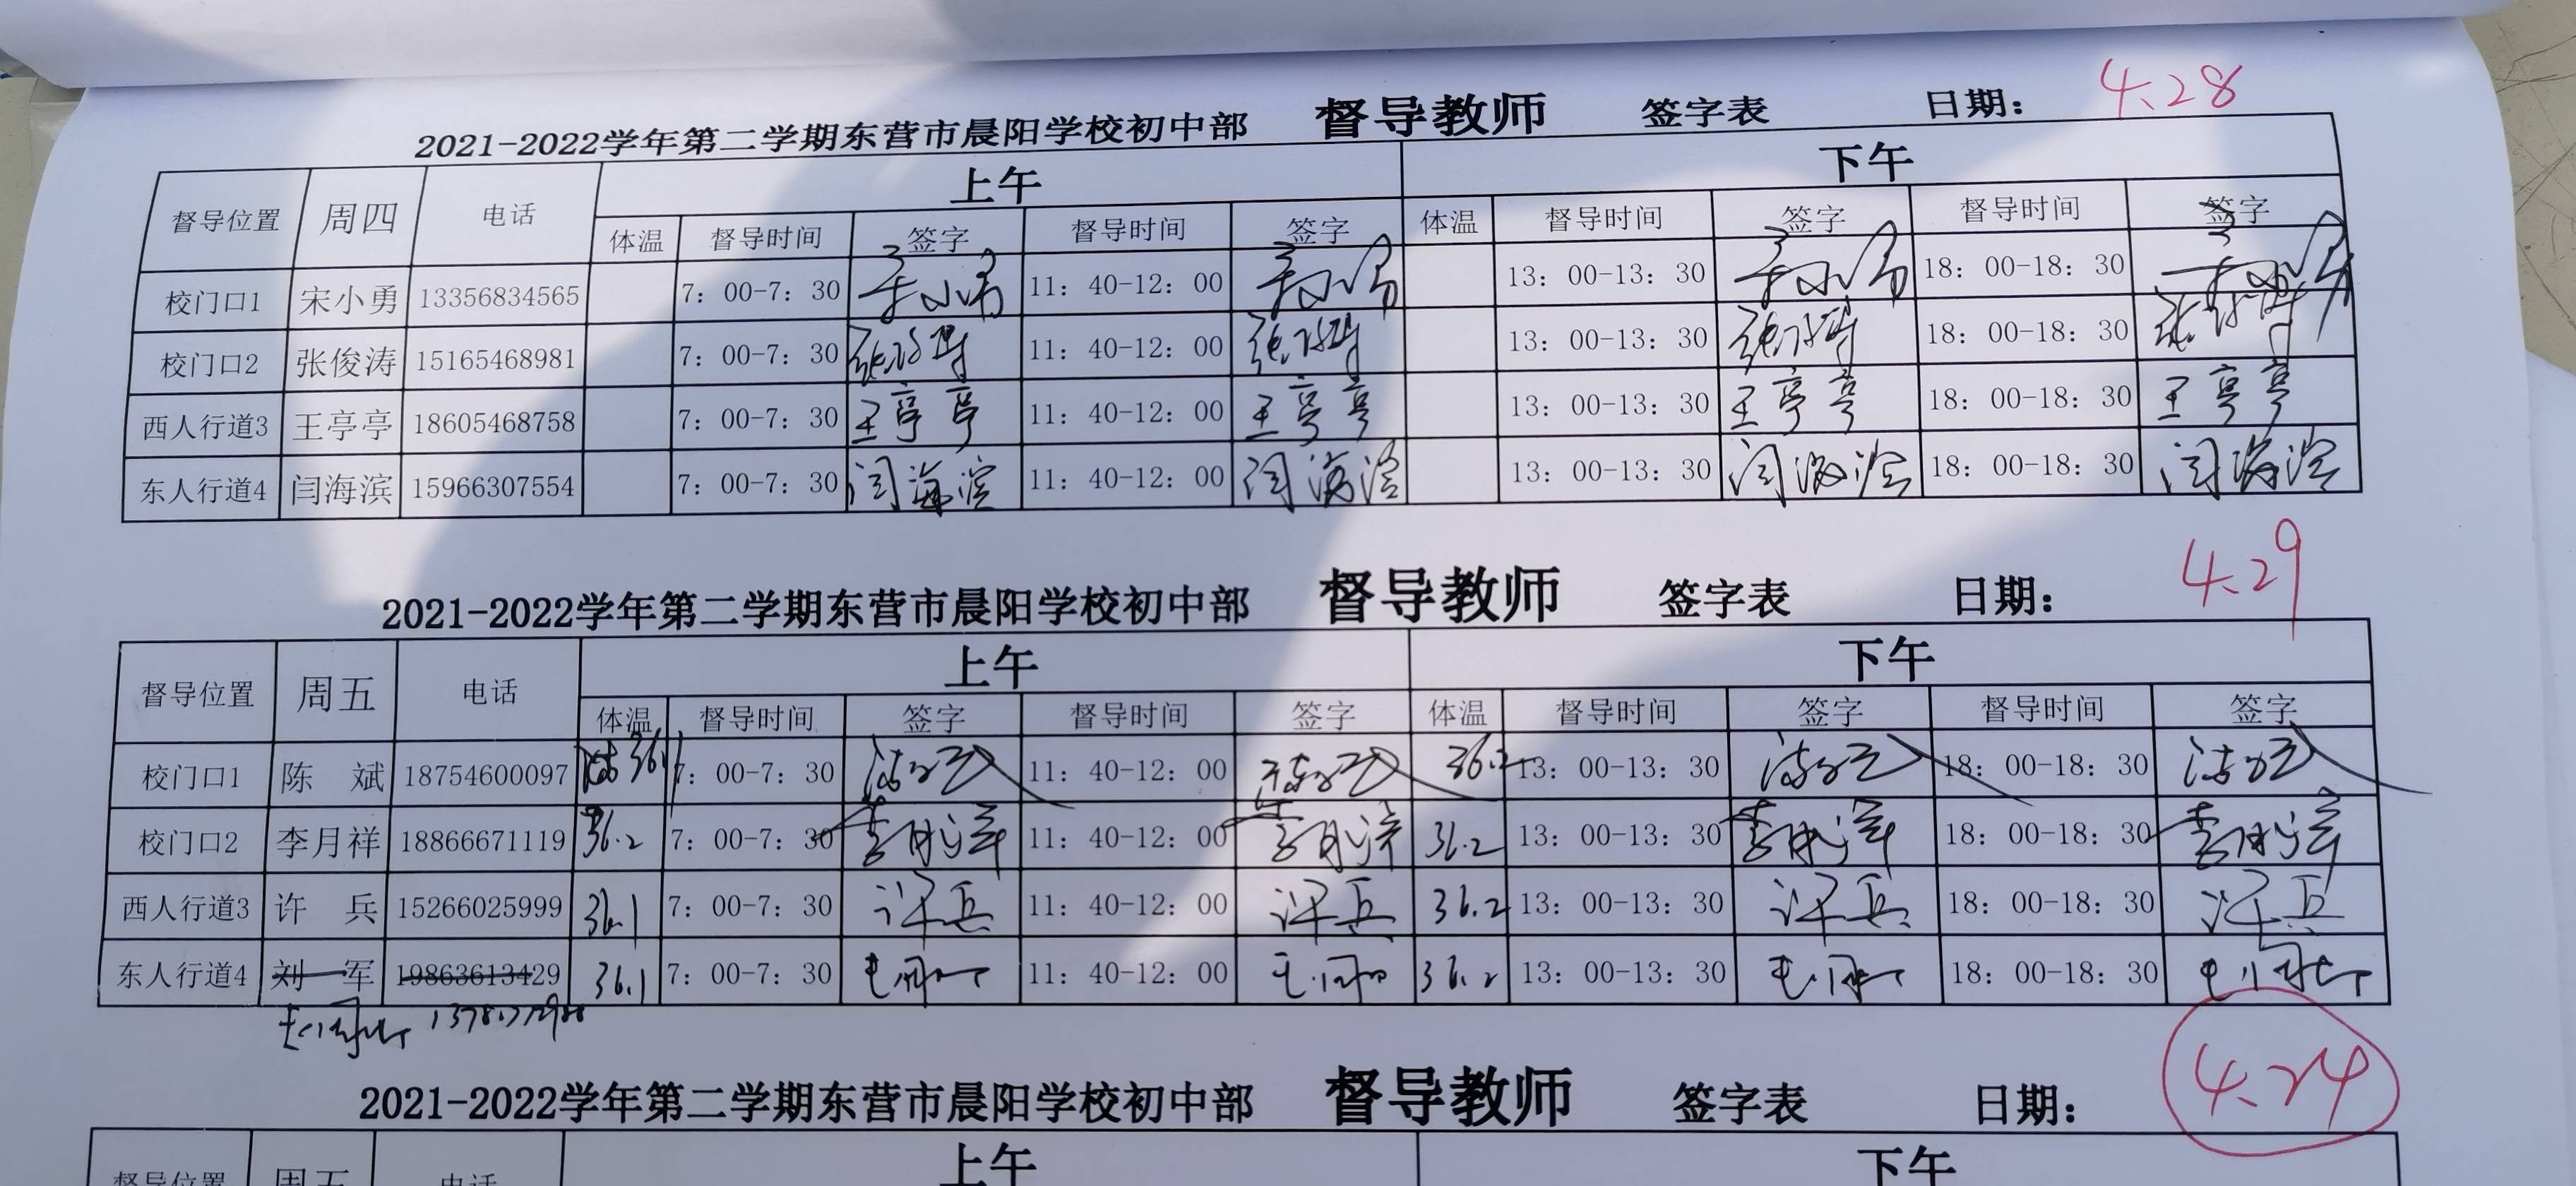 2021-2022学年第二学期东营市晨阳学校初中部 督导教师 签字表 日期： 4.28
督导位置 周四 电话 上午 下午
体温 督导时间 签字 督导时间 签字 体温 督导时间 签字 督导时间 签字
校门口1 宋小勇 13356834565 7：00-7：30 宋小勇 11：40-12：00 宋小勇 13：00-13：30 宋小勇 18：00-18：30 宋小勇
校门口2 张俊涛 15165468981 7：00-7：30 张俊涛 11：40-12：00 张俊涛 13：00-13：30 张俊涛 18：00-18：30 张俊涛
西人行道3 王亭亭 18605468758 7：00-7：30 王亭亭 11：40-12：00 王亭亭 13：00-13：30 王亭亭 18：00-18：30 王亭亭
东人行道4 闫海滨 15966307554 7：00-7：30 闫海滨 11：40-12：00 闫海滨 13：00-13：30 闫海滨 18：00-18：30 闫海滨
2021-2022学年第二学期东营市晨阳学校初中部 督导教师 签字表 日期： 4.29
督导位置 周五 电话 上午 下午
体温 督导时间 签字 督导时间 签字 体温 督导时间 签字 督导时间 签字
校门口1 陈 斌 18754600097 36.1 7：00-7：30 陈斌 11：40-12：00 陈斌 36.2 13：00-13：30 陈斌 18：00-18：30 陈斌
校门口2 李月祥 18866671119 36.2 7：00-7：30 李月祥 11：40-12：00 李月祥 36.2 13：00-13：30 李月祥 18：00-18：30 李月祥
西人行道3 许 兵 15266025999 36.1 7：00-7：30 许兵 11：40-12：00 许兵 36.2 13：00-13：30 许兵 18：00-18：30 许兵
东人行道4 刘 军 19863613429 36.1 7：00-7：30 11：40-12：00 36.2 13：00-13：30 18：00-18：30
2021-2022学年第二学期东营市晨阳学校初中部 督导教师 签字表 日期： 4.24
督导位置 周五 电话 上午 下午